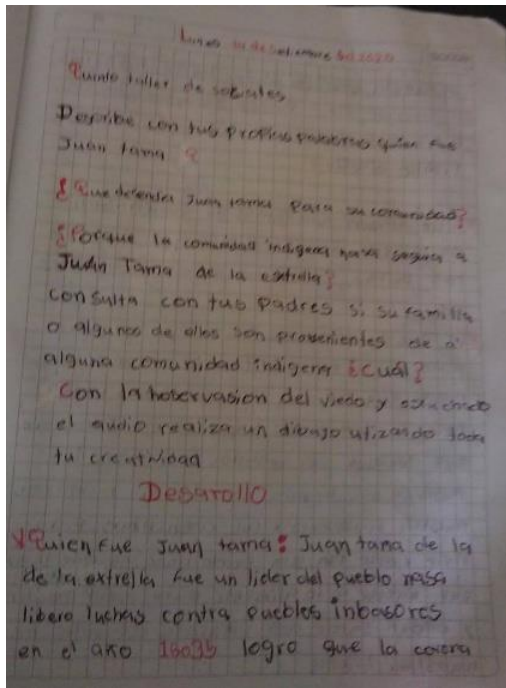 Lunes de setiembre del 2020
Quinto taller de sociales
Describe con tus propias palabras quien fue
Juan tama ?
¿ Que defendia Juan tama para su comunidad?
¿Porque la comunidad indigena nasa seguia a
Juan Tama de la estrella?
Consulta con tus padres si su familia
o algunos de ellos son provenientes de a
alguna comunidad indigena ¿cual?
Con la hobservasion del viedo y escuchado
el audio realiza un dibujo utizando toda
tu creatividad
Desarollo
Quien fue Juan tama: Juan tama de la
de la extrella fue un lider del pueblo nasa
libero luchas contra pueblos inbasores
en el año logro que la corera